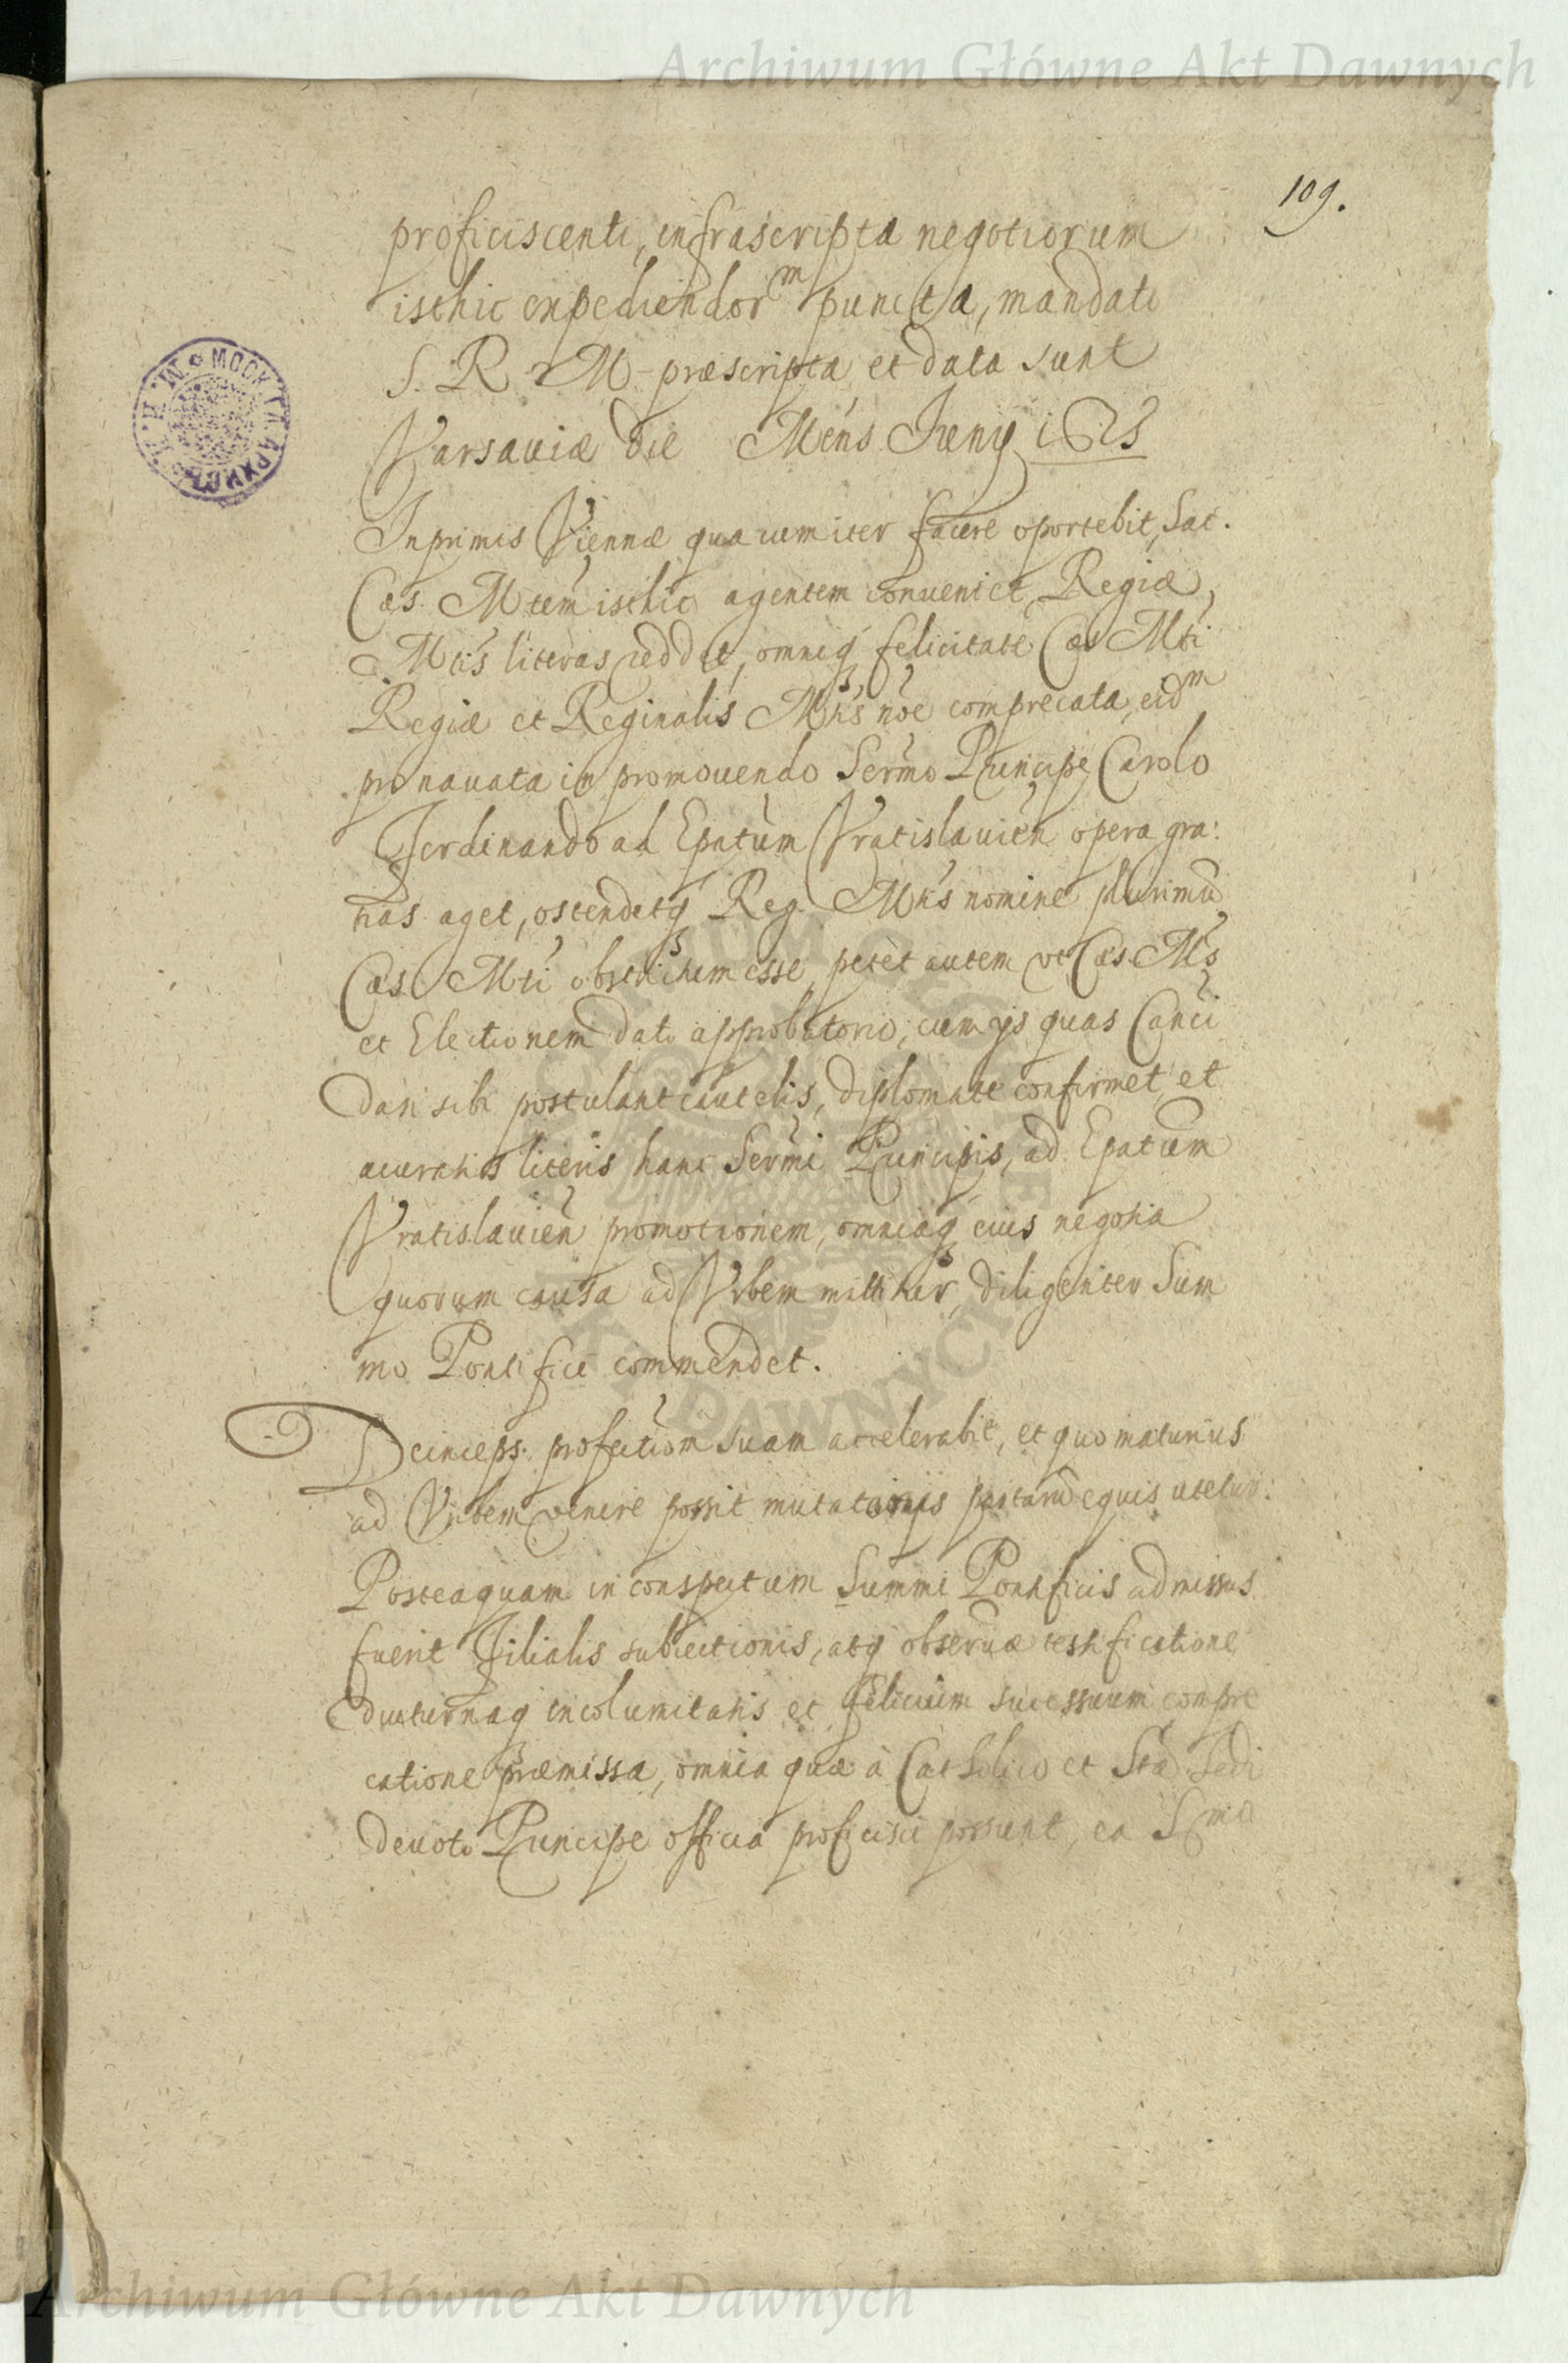 Archiwum Główne Akt Dawnych
109.
proficiscenti, infrascripta negotiorum
isthic expediendorm puncta, mandato
S. R. M. præscripta et data sunt
Varsaviæ die Mens Juny 1625
Inprimis Viennæ qua cum iter facere oportebit, Sac.
Cæs. Mtem isthic agentem conueniet, Regiæ
Mtis literas reddet, omniq felicitate Cæs Mti
Regiæ et Reginalis Mtis noe comprecata, eidm
pro nauata in promouendo Sermo Principe Carolo
Ferdinando ad Epatum Vratislauien opera gra:
tias aget, ostendetq Reg. Mtis nomine plurimu
Cæs. Mti obstrictum esse, petet autem vt Cæs. Mts
et Electionem dato approbatorio, cum ijs quas Canci
dari sibi postulant cautelis, diplomate confirmet, et
accuratis literis hanc Sermi Principis, ad Epatum
Vratislauien promotionem, omniaq eius negotia
quorum causa ad Vrbem mittitur, diligenter Sum
mo Pontifici commendet.
Deinceps profectiom suam accelerabit, et quo maturius
ad Vrbem venire possit mutatorijs equis utetur.
Posteaquam in conspectum Summi Pontificis admissus
fuerit Filialis subiectionis, atq obseruæ testificatione
diuturnaq incolumitatis et felicium sucessuum compre
catione præmissa, omnia quæ à Catholico et Stæ Sedi
deuoto Principe officia proficisci possunt, ea Smo
Archiwum Główne Akt Dawnych